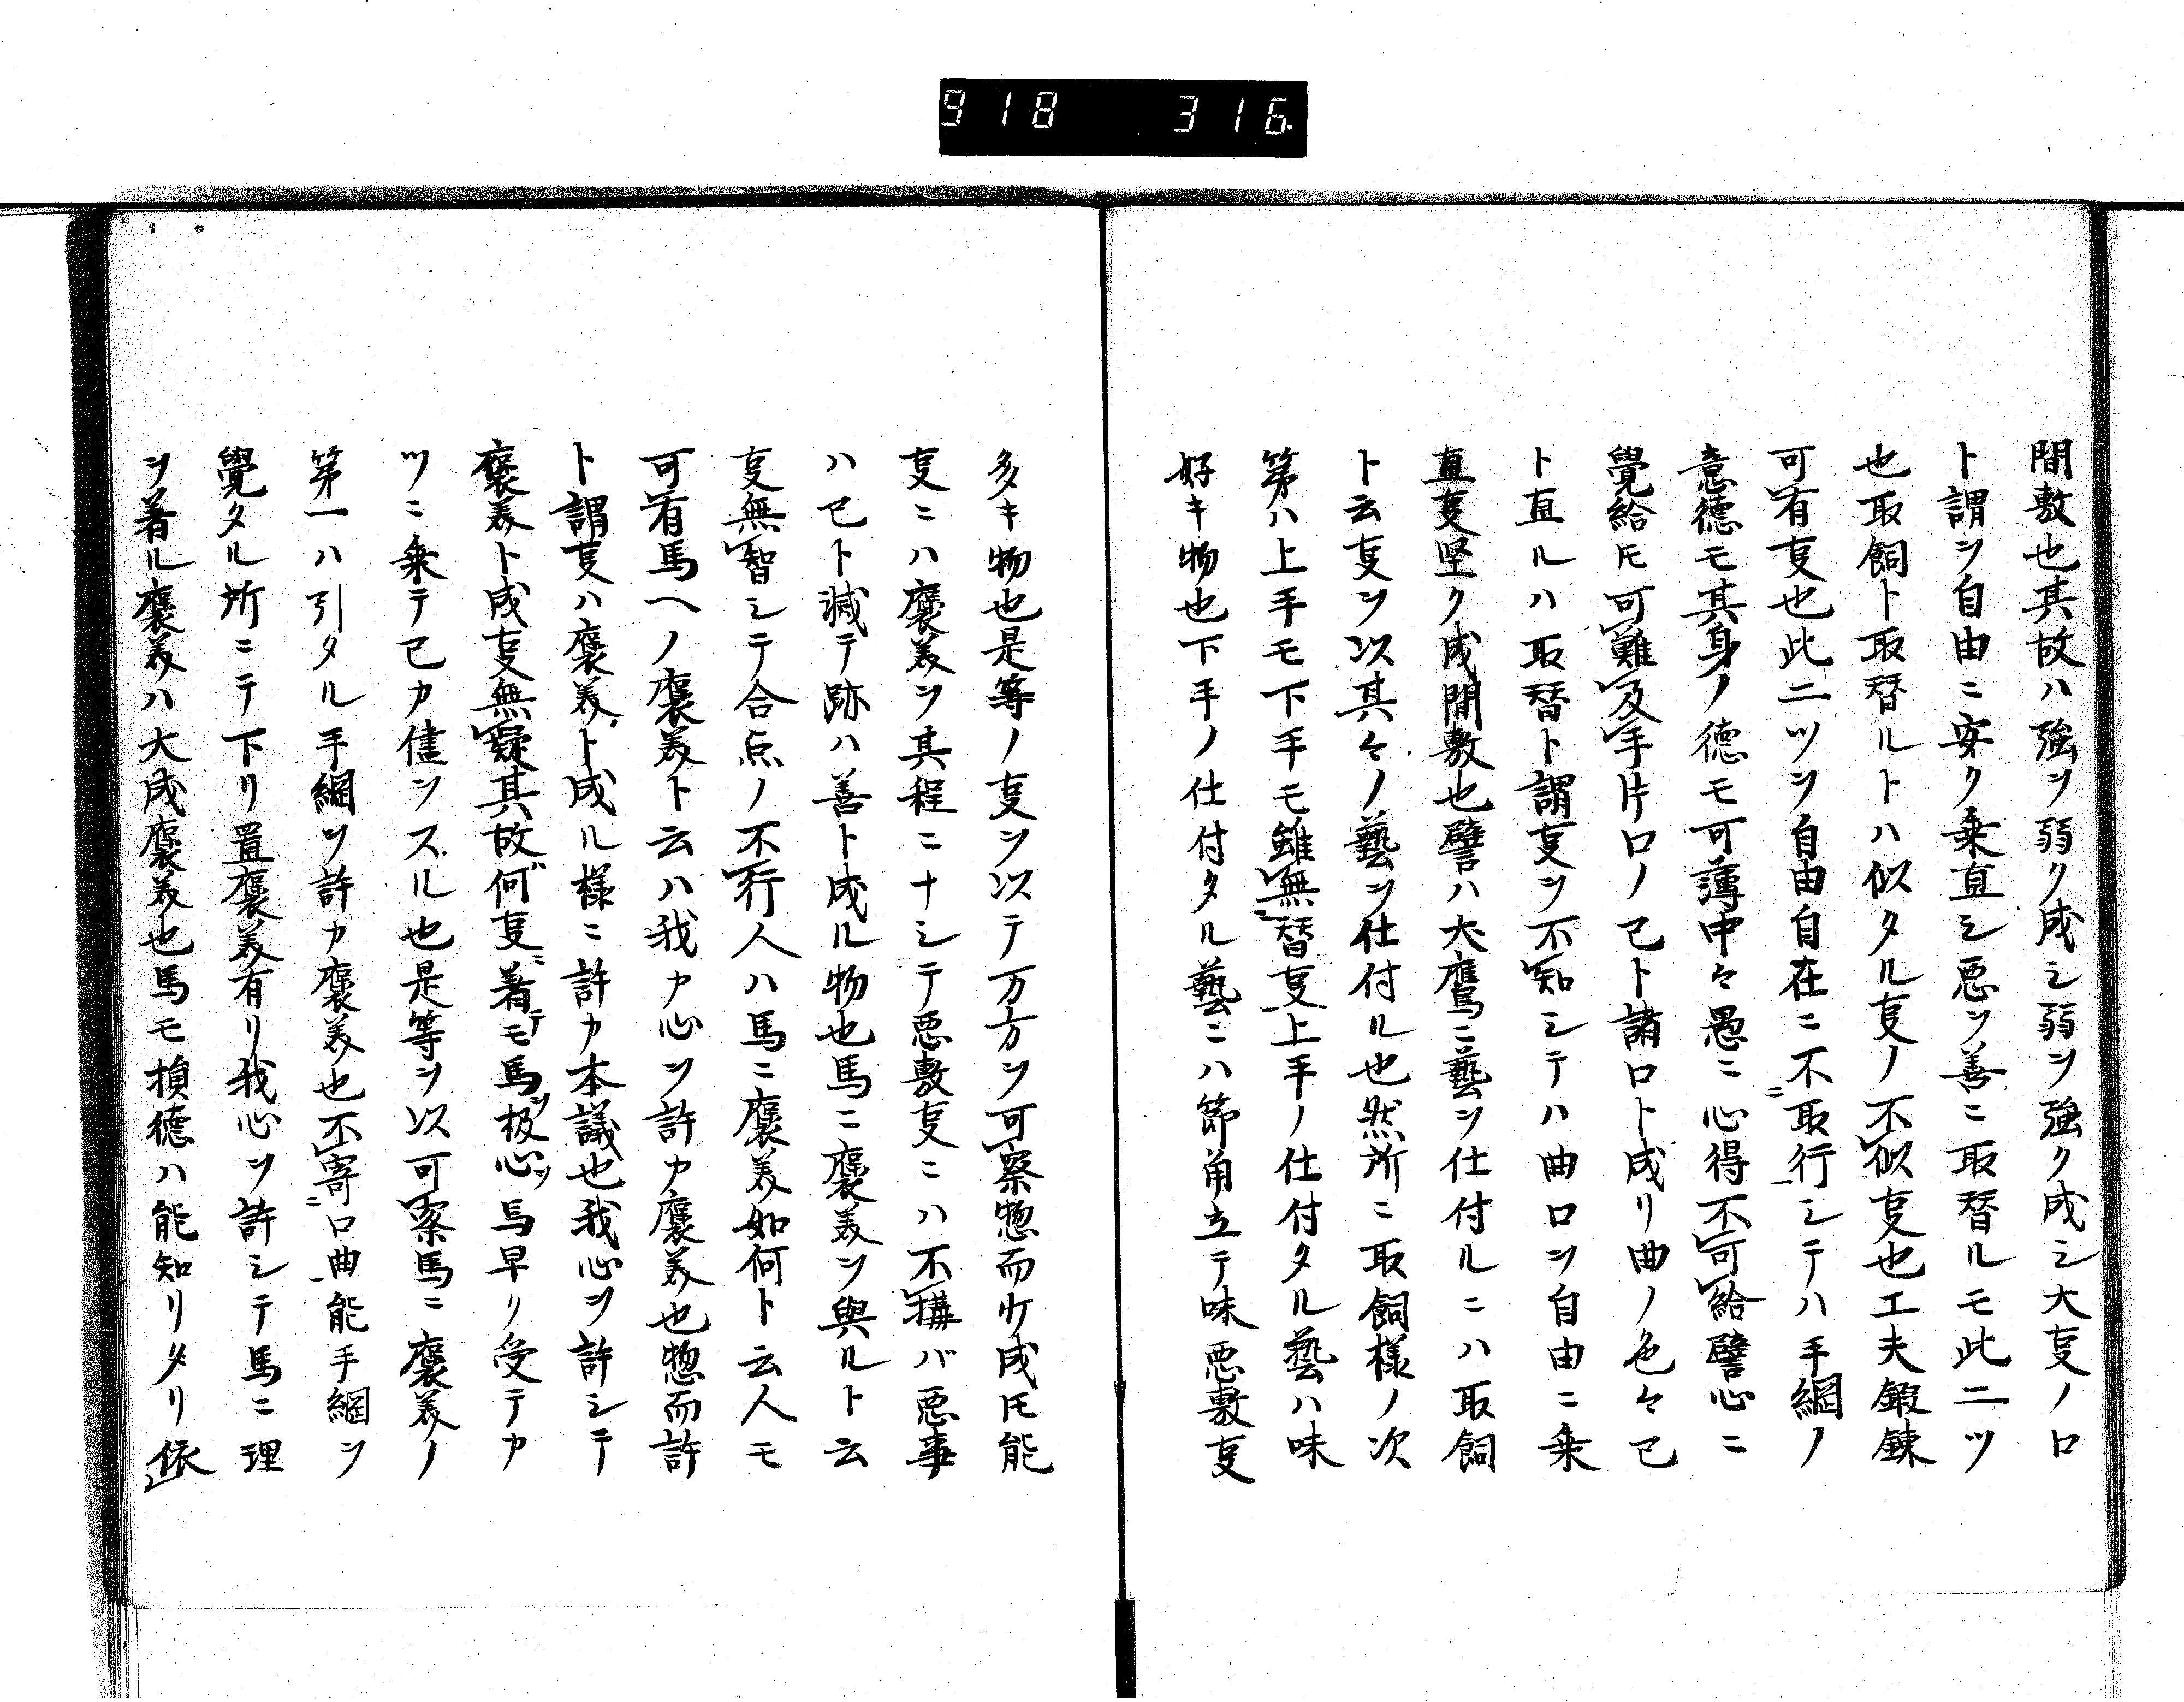 918 316
間敷也其故ハ強ヲ弱ク成シ弱ヲ強ク成シ大㕝ノ口
ト謂ヲ自由ニ安ク乗直シ悪ヲ善ニ取替ルモ此二ツ
也取飼ト取替ルトハ似タル㕝ノ不似㕝也工夫鍛錬
可有㕝也此二ツヲ自由自在ニ不取行シテハ手綱ノ
意徳モ其身ノ徳モ可薄中々愚ニ心得不可給譬心ニ
覺給𪜈可難及手片口ノ己ト諸口ト成リ曲ノ色々己
ト直ルハ取替ト謂㕝ヲ不知シテハ曲口ヲ自由ニ乗
直㕝堅ク成間敷也譬ハ犬鷹ニ藝ヲ仕付ルニハ取飼
ト云㕝ヲ以其々ノ藝ヲ仕付ル也然所ニ取飼様ノ次
第ハ上手モ下手モ雖無替㕝上手ノ仕付タル藝ハ味
好キ物也下手ノ仕付タル藝ニハ節角立テ味悪敷㕝
多キ物也是等ノ㕝ヲ以テ万方ヲ可察惣而少成𪜈能
㕝ニハ褒美ヲ其程ニナシテ悪敷㕝ニハ不構バ悪事
ハ己ト減テ跡ハ善ト成ル物也馬ニ褒美ヲ與ルト云
㕝無智シテ合点ノ不行人ハ馬ニ褒美如何ト云人モ
可有馬ヘノ褒美ト云ハ我カ心ヲ許カ褒美也惣而許
ト謂㕝ハ褒美ト成ル様ニ許カ本議也我心ヲ許シテ
褒美ト成㕝無疑其故何㕝ニ着テモ馬ヲ扱心ツ馬早リ受テカ
ツニ乗テ己カ儘ヲスル也是等ヲ以可察馬ニ褒美ノ
第一ハ引タル手綱ヲ許カ褒美也不寄口曲能手綱ヲ
覺タル所ニテ下リ置褒美有リ我心ヲ許シテ馬ニ理
ヲ着ル褒美ハ大成褒美也馬モ損徳ハ能知リタリ依